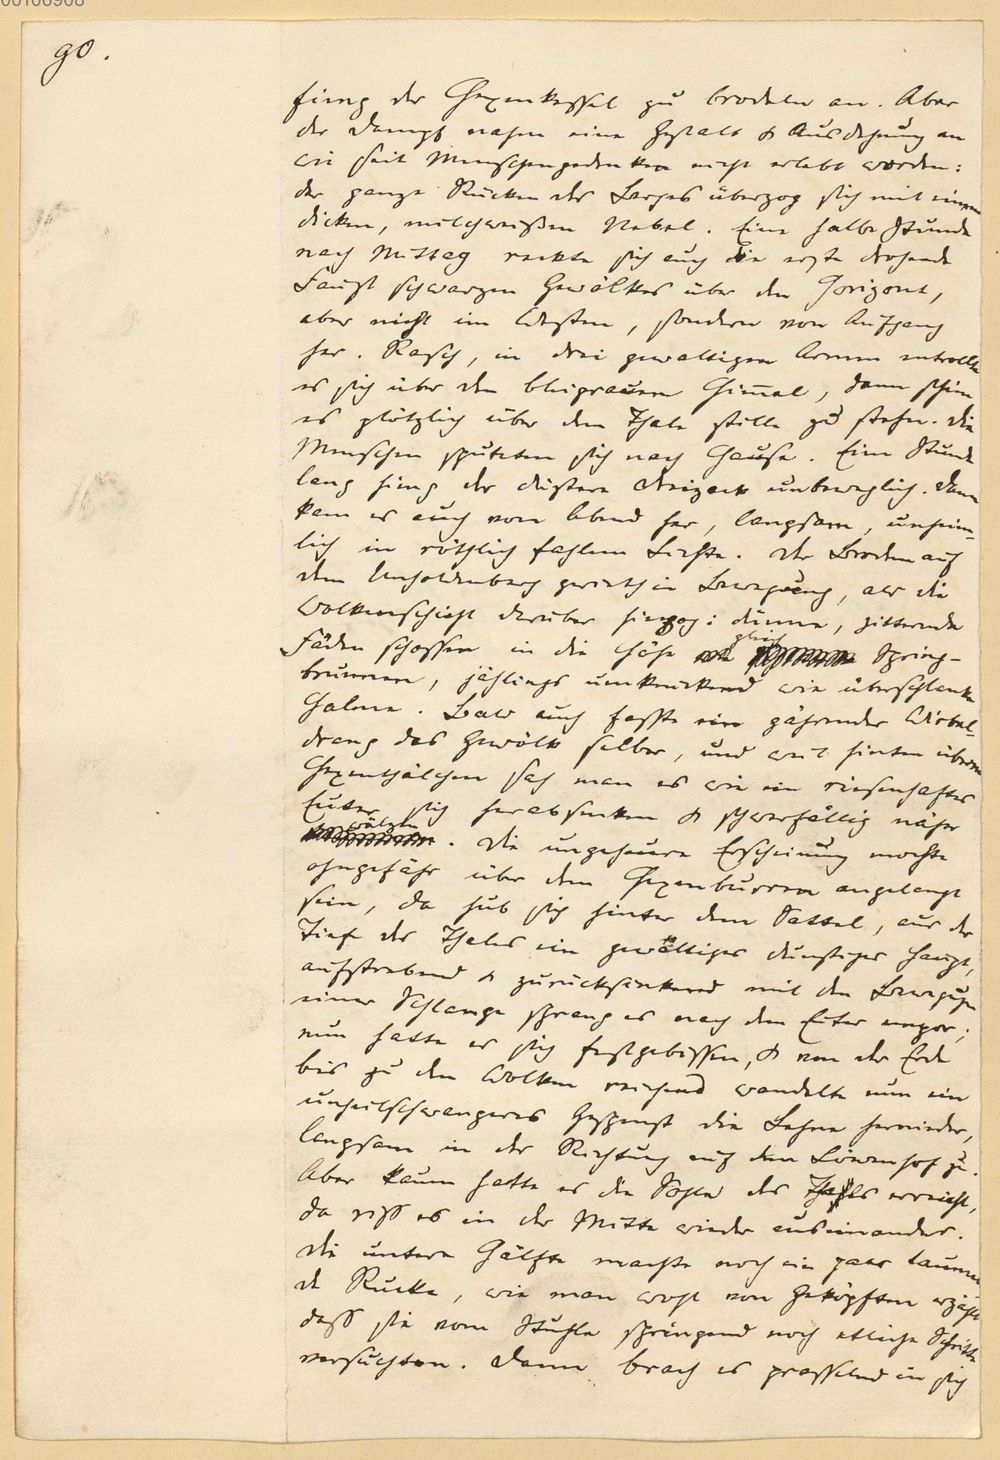 00106908
90.
fing der Hexenkessel zu brodeln an. Aber
der Dampf nahm eine Gestalt & Ausdehnung an
wie seit Menschengedenken nicht erlebt worden:
der ganze Rücken des Berges überzog sich mit einem
dicken, milchweißen Nebel. Eine halbe Stunde
nach Mittag reckte sich auch die erste drohende
Faust schwarzen Gewölkes über den Horizont,
aber nicht im Westen, sondern von Aufgang
her. Rasch, in drei gewaltigen Armen entrollte
es sich über den bleigrauen Him̅el, dann schien
es plötzlich über dem Thale stille zu stehn. Die
Menschen sputeten sich nach Hause. Eine Stunde
lang hing der düstere Dreizack unbeweglich. Dann
kam es auch vom Abend her, langsam, unheim-
lich in röthlich fahlem Lichte. Der Broden auf
dem Unholdenberg gerieth in Bewegung, als die
Wolkenschicht darüber hinzog: dünne, zitternde
Fäden schossen in die Höhe gleich Spring-
brunnen, jählings umknickend wie überschlanke
Halme. Bald auch faßte ein gährender Wirbel-
drang das Gewölk selber, und weit hinten überm
Hexenthälchen sah man es wie ein riesenhaftes
Euter sich herabsenken & schwerfällig näher
wälzen. Die ungeheure Erscheinung mochte
ohngefähr über dem Hexenburren angelangt
sein, da hub sich hinter dem Sattel, aus der
Tiefe des Thales ein gewältiges dunstiges Haupt,
aufstrebend & zurücksinkend mit den Bewegungen
einer Schlange sprang es nach dem Euter empor;
nun hatte es sich festgebissen, & von der Erde
bis zu den Wolken reichend wandelte nun ein
unheilschwangeres Gespenst die Lehne hernieder,
langsam in der Richtung auf den Löwenhof zu.
Aber kaum hatte es die Sohle des Thales erreicht,
da riß es in der Mitte wieder auseinander.
Die untere Hälfte machte noch ein paar taumeln
de Rucke, wie man wohl von Geköpften erzählt
daß sie vom Stuhle springend noch etliche Schritte
versuchten. Dann brach es prasselnd in sich